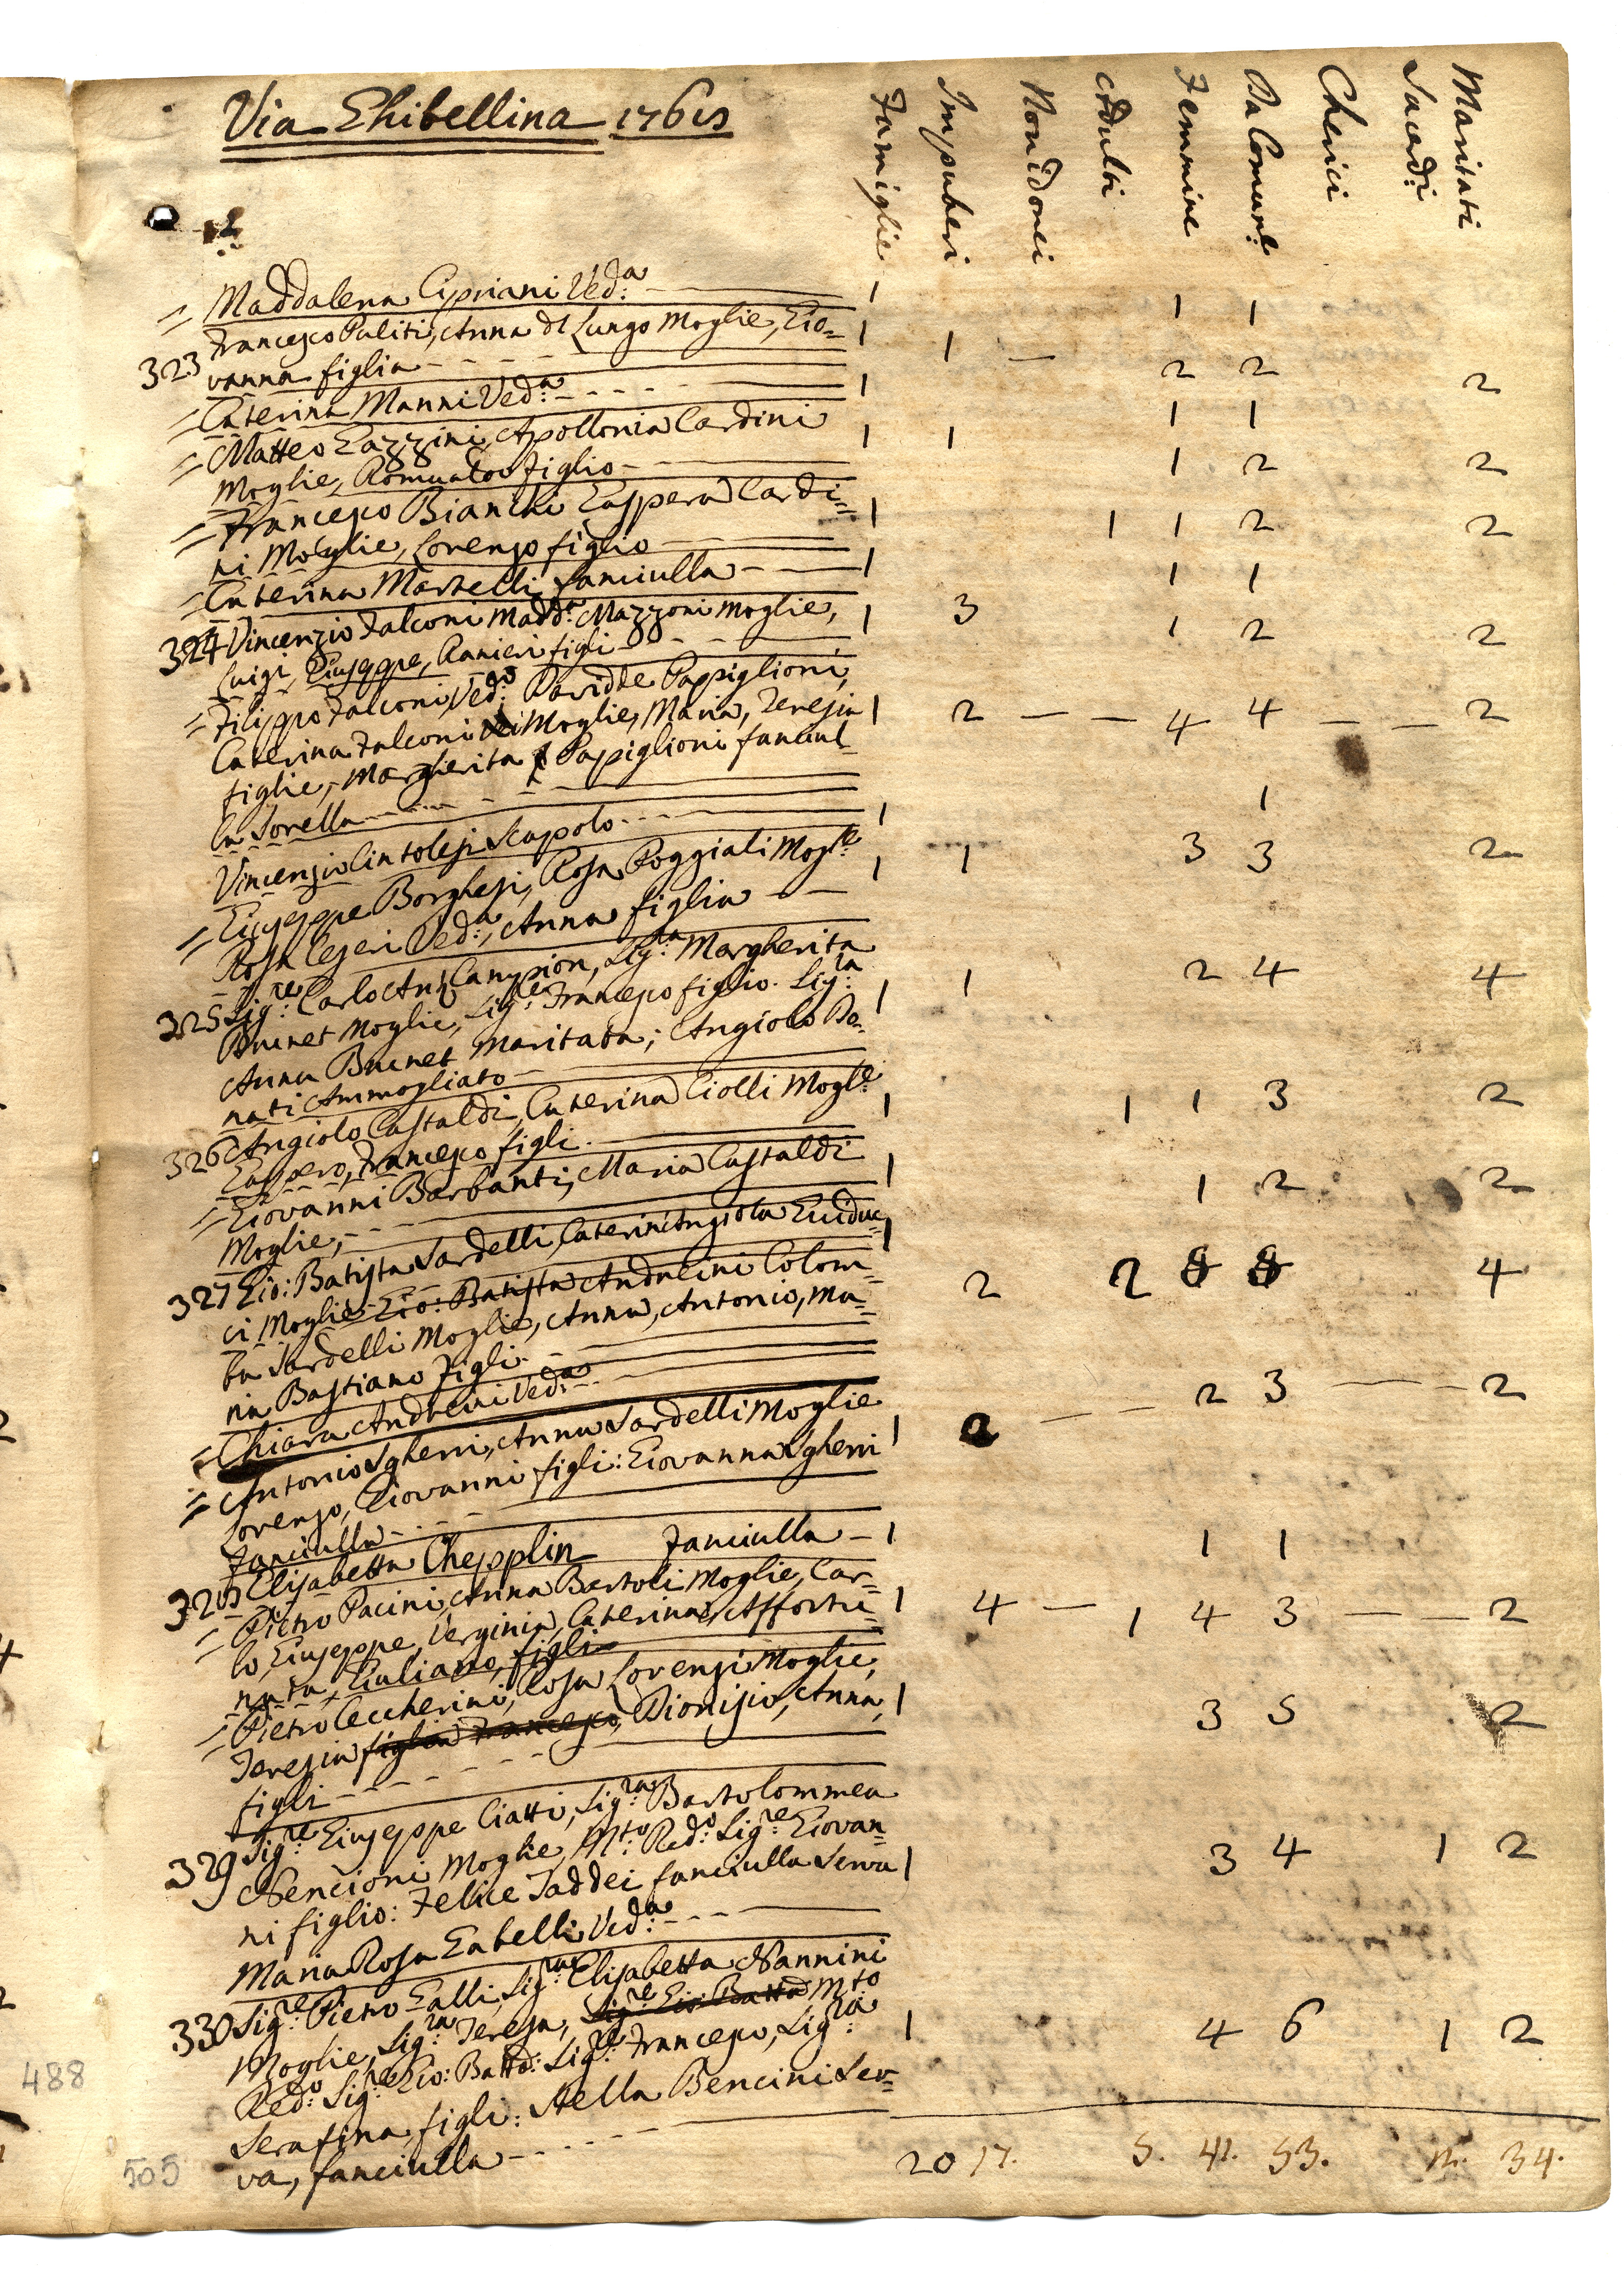 Via Ghibellina 1765
Famiglie Impuberi Non idonei Adulti Femmine Da Comun.e Cherici Sacerdi: Maritati
= Maddalena Cipriani Ved:a - 1 1 1
323 Francesco Puliti, Anna del Lungo Moglie, Gio= 1 1 — 2 2 2
vanna figlia - - -
= Caterina Manni Ved:a - - - 1 1 1
= Matteo Gazzini, Apollonia Cardini 1 1 1 2 2
Moglie, Romualdo figlio - -
= Francesco Bianchi Gaspera Cardi= 1 1 1 2 2
ni Moglie, Lorenzo figlio
= Caterina Martelli fanciulla - - 1 1 1
324 Vincenzio Falconi Madd:a Mazzoni Moglie, 1 3 1 2 2
Luigi, Giuseppe, Ranieri figli - -
= Filippo Falconi, Ved:o Davidde Pappiglioni,
Caterina Falconi Moglie, Maria, Teresia 1 2 — — 4 4 — — 2
figlie, Margherita Papiglioni fanciul=
la Sorella - - - -
Vincenzio Cintolesi Scapolo - - - 1 1
= Giuseppe Borghesi, Rosa Poggiali Mogl:e 1 1 3 3 2
Rosa Ceseri Ved:a, Anna figlia - -
325 Sig:re Carlo Ant: Campion, Sig:ra Margherita
Brunet Moglie, Sig:re Francesco figlio. Sig:ra 1 1 2 4 4
Anna Brunet Maritata; Angiolo Do=
nati Ammogliato -
326 Angiolo Castaldi, Caterina Ciolli Mogl:e 1 1 1 3 2
Gaspero, Francesco figli.
= Giovanni Barbanti, Maria Castaldi 1 1 2 2
Moglie, - -
327 Gio: Batista Sardelli, Caterin'Angiola Guiduc= 1 2 2 8 8 4
ci Moglie Gio: Batista Andreini Colom=
ba Sardelli Moglie, Anna, Antonio, Ma=
ria Bastiano figli -
= Chiara Andreini Ved:a -
= Antonio Sgherri, Anna Sardelli Moglie 1 2 — — 2 3 — — 2
Lorenzo, Giovanni figli: Giovanna Sgherri
fanciulla - - -
328 Elisabetta Chepplin Fanciulla - 1 1 1
= Pietro Pacini, Anna Bartoli Moglie, Car= 1 4 — 1 4 3 — — 2
lo, Giuseppe, Verginia, Caterina, Affortu=
nata, Giuliano, figli
= Pietro Ceccherini, Rosa Lorenzi Moglie,
Teresia figlia Francesco, Dionisio, Anna, 1 3 5 2
figli - - - -
329 Sig:re Giuseppe Ciatti, Sig:ra Bartolommea
Nencioni Moglie, M:to Red:o Sig:re Giovan=
ni figlio: Felice Taddei fanciulla Serva 1 3 4 1 2
Maria Rosa Gabelli Ved:a - - -
330 Sig:re Pietro Galli, Sig:ra Elisabetta Nannini
Moglie, Sig:ra Teresa, Sig:re Gio: Batta M:to
Red:o Sig:re Gio: Batta: Sig:re Francesco, Sig:ra 1 4 6 1 2
Serafina, figli: Stella Bencini Ser=
va, fanciulla - - - -
20 17. 5. 41. 53. 34.
488
505